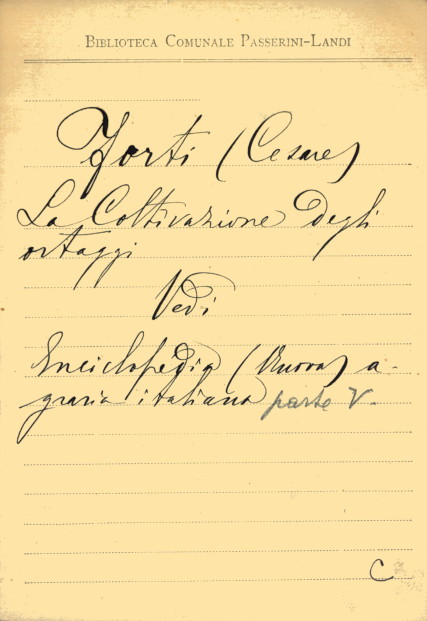 BIBLIOTECA COMUNALE PASSERINI-LANDI
Forti (Cesare)
La Coltivazione Degli
ortaggi
Vedi
Enciclopedia (Nuova) a-
graria italiana parte V.
C